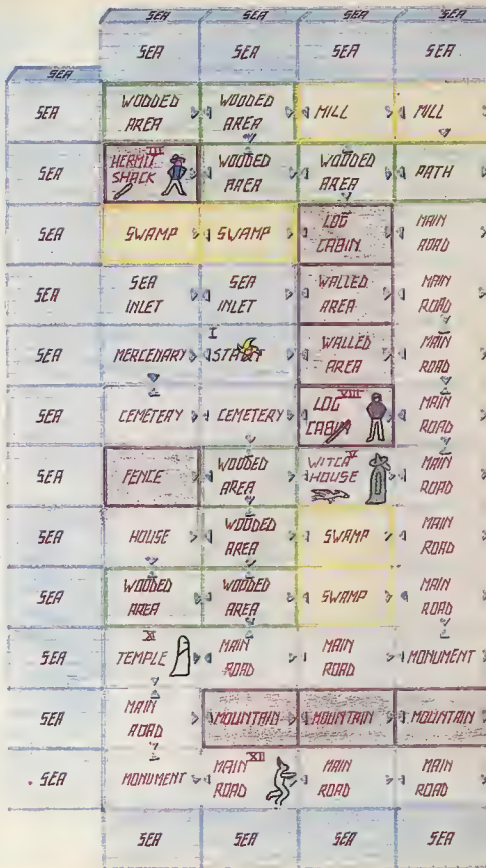 SEA SEA SEA SEA
SEA SEA SEA SEA
SEA
SEA WOODED AREA WOODED AREA MILL MILL
SEA HERMIT SHACK III WOODED AREA WOODED AREA PATH
SEA SWAMP SWAMP LOG CABIN MAIN ROAD
SEA SEA INLET SEA INLET WALLED AREA MAIN ROAD
SEA MERCEDARY I START WALLED AREA MAIN ROAD
SEA CEMETERY CEMETERY LOG CABIN VIII MAIN ROAD
SEA FENCE WOODED AREA WITCH HOUSE V MAIN ROAD
SEA HOUSE WOODED AREA SWAMP MAIN ROAD
SEA WOODED AREA WOODED AREA SWAMP MAIN ROAD
SEA XI TEMPLE MAIN ROAD MAIN ROAD MONUMENT
SEA MAIN ROAD MOUNTAIN MOUNTAIN MOUNTAIN
SEA MONUMENT MAIN ROAD XII MAIN ROAD MAIN ROAD
SEA SEA SEA SEA